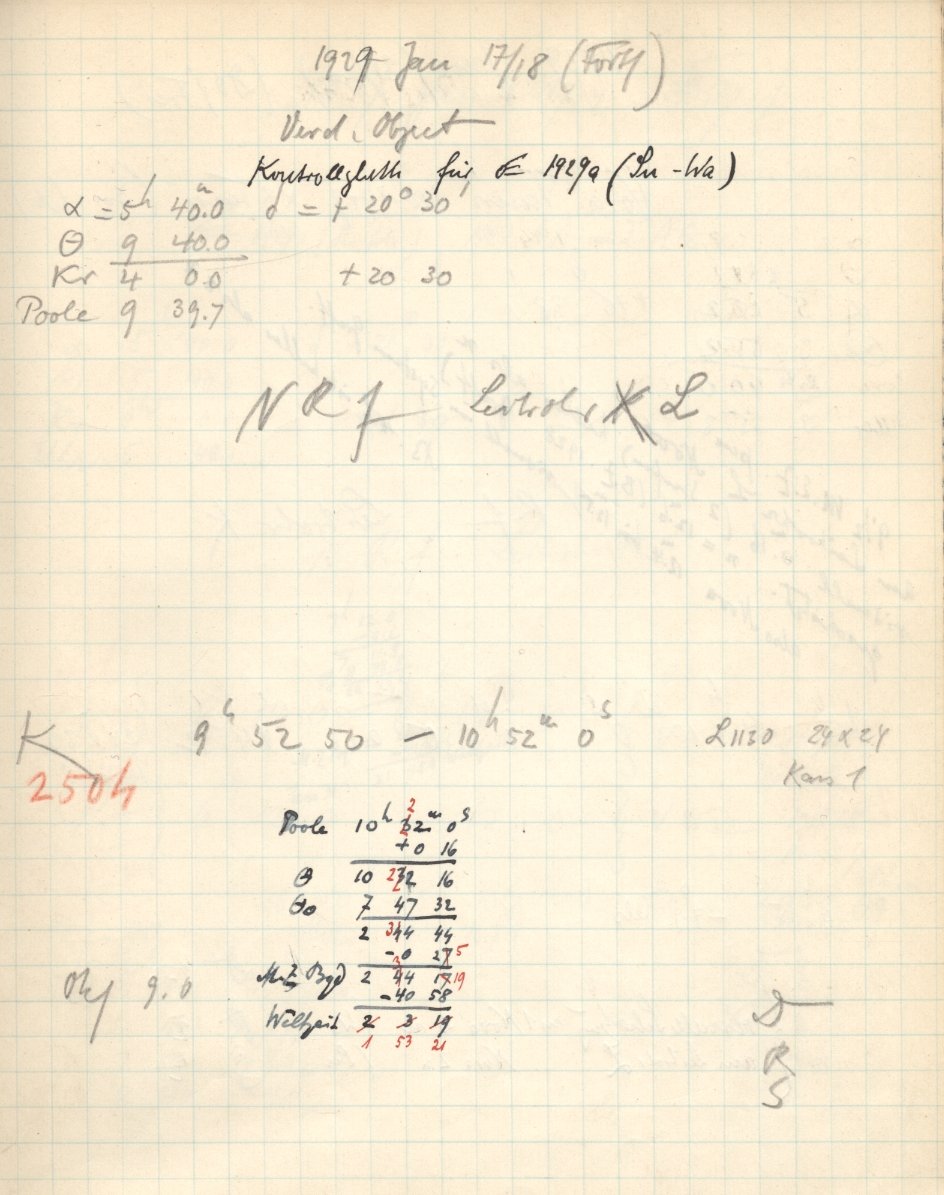 1929 Jan 17/18 (Forts)
Verd. Object
Kontrollplatte für 1929a (Su-Wa)
α = 5h 40.0m δ = + 20° 30'
Θ 9 40.0
Kr 4 0.0 + 20 30
Poole 9 39.7
NRf Leitrohr K L
K 9h 52 50 — 10h 52m 0s L1130 24 x 24
Kass 1
2504
2
Poole 10h 32m 0s
+0 16
Θ 10 32 16
Θ0 7 47 32
2 44 44
-0 27 5
Mttl Bgd 2 44 17 19
-40 58
Obj 9.0
Weltzeit 2 3 19
1 53 21
D
R
S